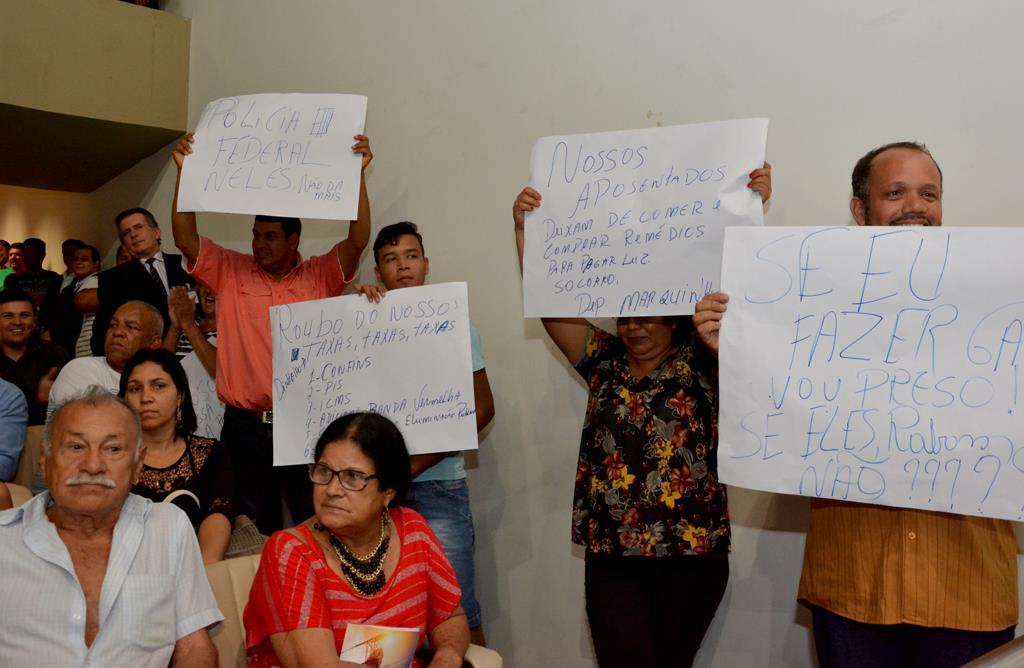 POLICIA
FÉDERAL
NELES, NÃO DA
MAIS
ROUBO DO NOSSO
TAXAS, TAXAS, TAXAS
DINHEIRO
1-CONFINS
2-PIS
3-ICMS
4- BANDA VERMELHA
5-
6-
NOSSOS
APOSENTADOS
DEIXAM DE COMER E
COMPRAR REMÉDIOS
PARA PAGAR LUZ.
SOCORRO,
DEP. MARQUINH
SE EU
FAZER GA
VOU PRESO!
SE ELES,
NÃO ????